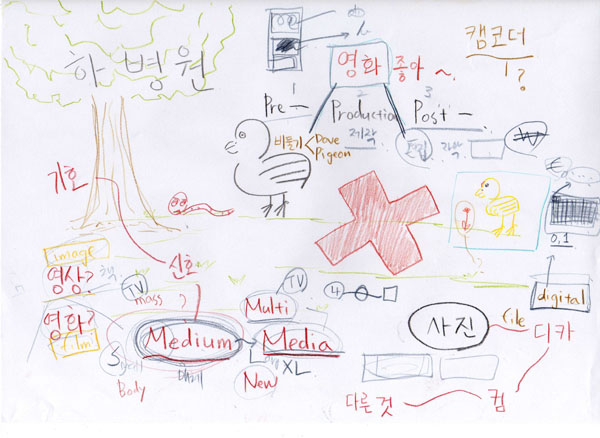 하 병원
영화 좋아~.
캠코더
?
1 2 3
Pre - Production Post -
제작
비둘기 Dove
Pigeon
₩
기호
image
영상?
신호
TV
mass ?
영화?
film
Medium
Multi
TV
Media
4
0,1
digital
사진
file
디카
S
Body
매체
New
XL
다른것
컴